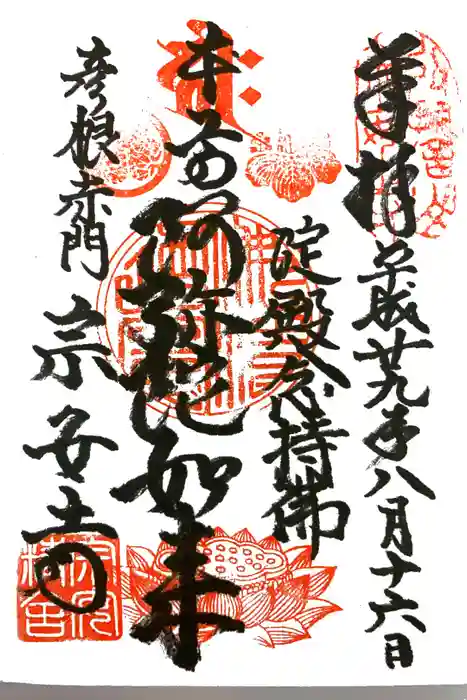 奉拝 平成廿九年八月十六日
淀殿念持佛
本尊 阿弥陀如来
彦根赤門
宗安寺